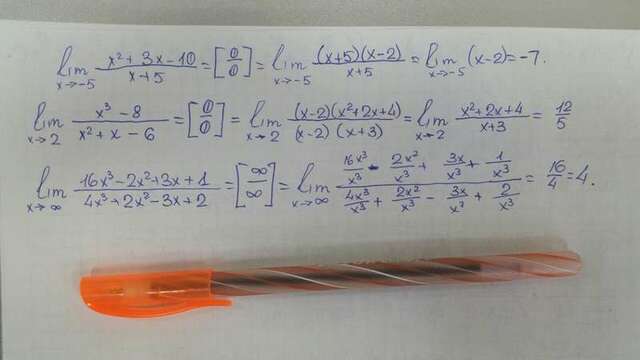 lim x→-5 (x² + 3x - 10)/(x+5) = [0/0] = lim x→-5 ((x+5)(x-2))/(x+5) = lim x→-5 (x-2) = -7.
lim x→2 (x³ - 8)/(x² + x - 6) = [0/0] = lim x→2 ((x-2)(x²+2x+4))/((x-2)(x+3)) = lim x→2 (x²+2x+4)/(x+3) = 12/5
lim x→∞ (16x³ - 2x² + 3x + 1)/(4x³ + 2x² - 3x + 2) = [∞/∞] = lim x→∞ (16x³/x³ - 2x²/x³ + 3x/x³ + 1/x³)/(4x³/x³ + 2x²/x³ - 3x/x³ + 2/x³) = 16/4 = 4.